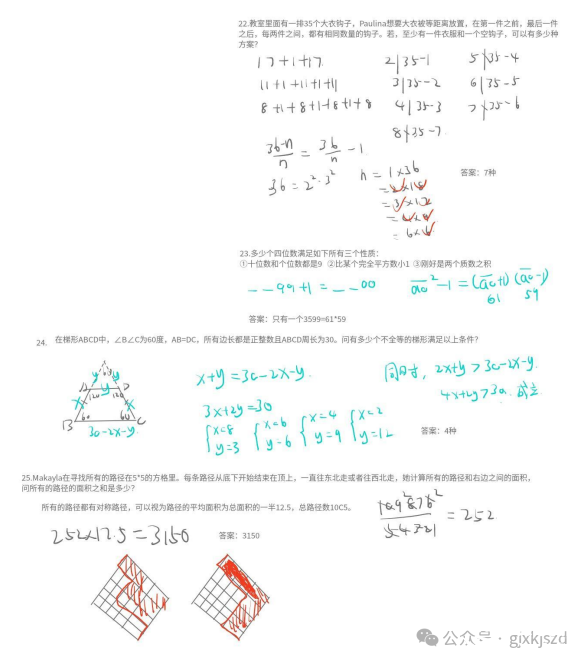 22.教室里面有一排35个大衣钩子，Paulina想要大衣被等距离放置，在第一件之前，最后一件
之后，每两件之间，都有相同数量的钩子。若，至少有一件衣服和一个空钩子，可以有多少种
方案?
17+1+17
2|35-1
5|35-4
11+1+11+1+11
3|35-2
6|35-5
8+1+8+1+8+1+8
4|35-3
7|35-6
8|35-7
36-n/n = 36/n - 1
36=2²·3²
n=1×36
=2×18
=3×12
=4×9
=6×6
答案：7种
23.多少个四位数满足如下所有三个性质：
①十位数和个位数都是9 ②比某个完全平方数小1 ③刚好是两个质数之积
_ _99+1=_ _00
a0²-1=(a0+1)(a0-1)
61 59
答案：只有一个3599=61*59
24. 在梯形ABCD中，∠B∠C为60度，AB=DC，所有边长都是正整数且ABCD周长为30。问有多少个不全等的梯形满足以上条件?
y y
A y D
120 120
x x
B 60 60 C
30-2x-y
x+y=30-2x-y
同时，2x+y>30-2x-y
4x+2y>30 成立
3x+2y=30
{x=8 {x=6 {x=4 {x=2
y=3 y=6 y=9 y=12
答案：4种
25.Makayla在寻找所有的路径在5*5的方格里。每条路径从底下开始结束在顶上，一直往东北走或者往西北走，她计算所有的路径和右边之间的面积，
问所有的路径的面积之和是多少?
所有的路径都有对称路径，可以视为路径的平均面积为总面积的一半12.5，总路径数10C5。
252×12.5=3150
答案：3150
=252
公众号 · gjxkjszd